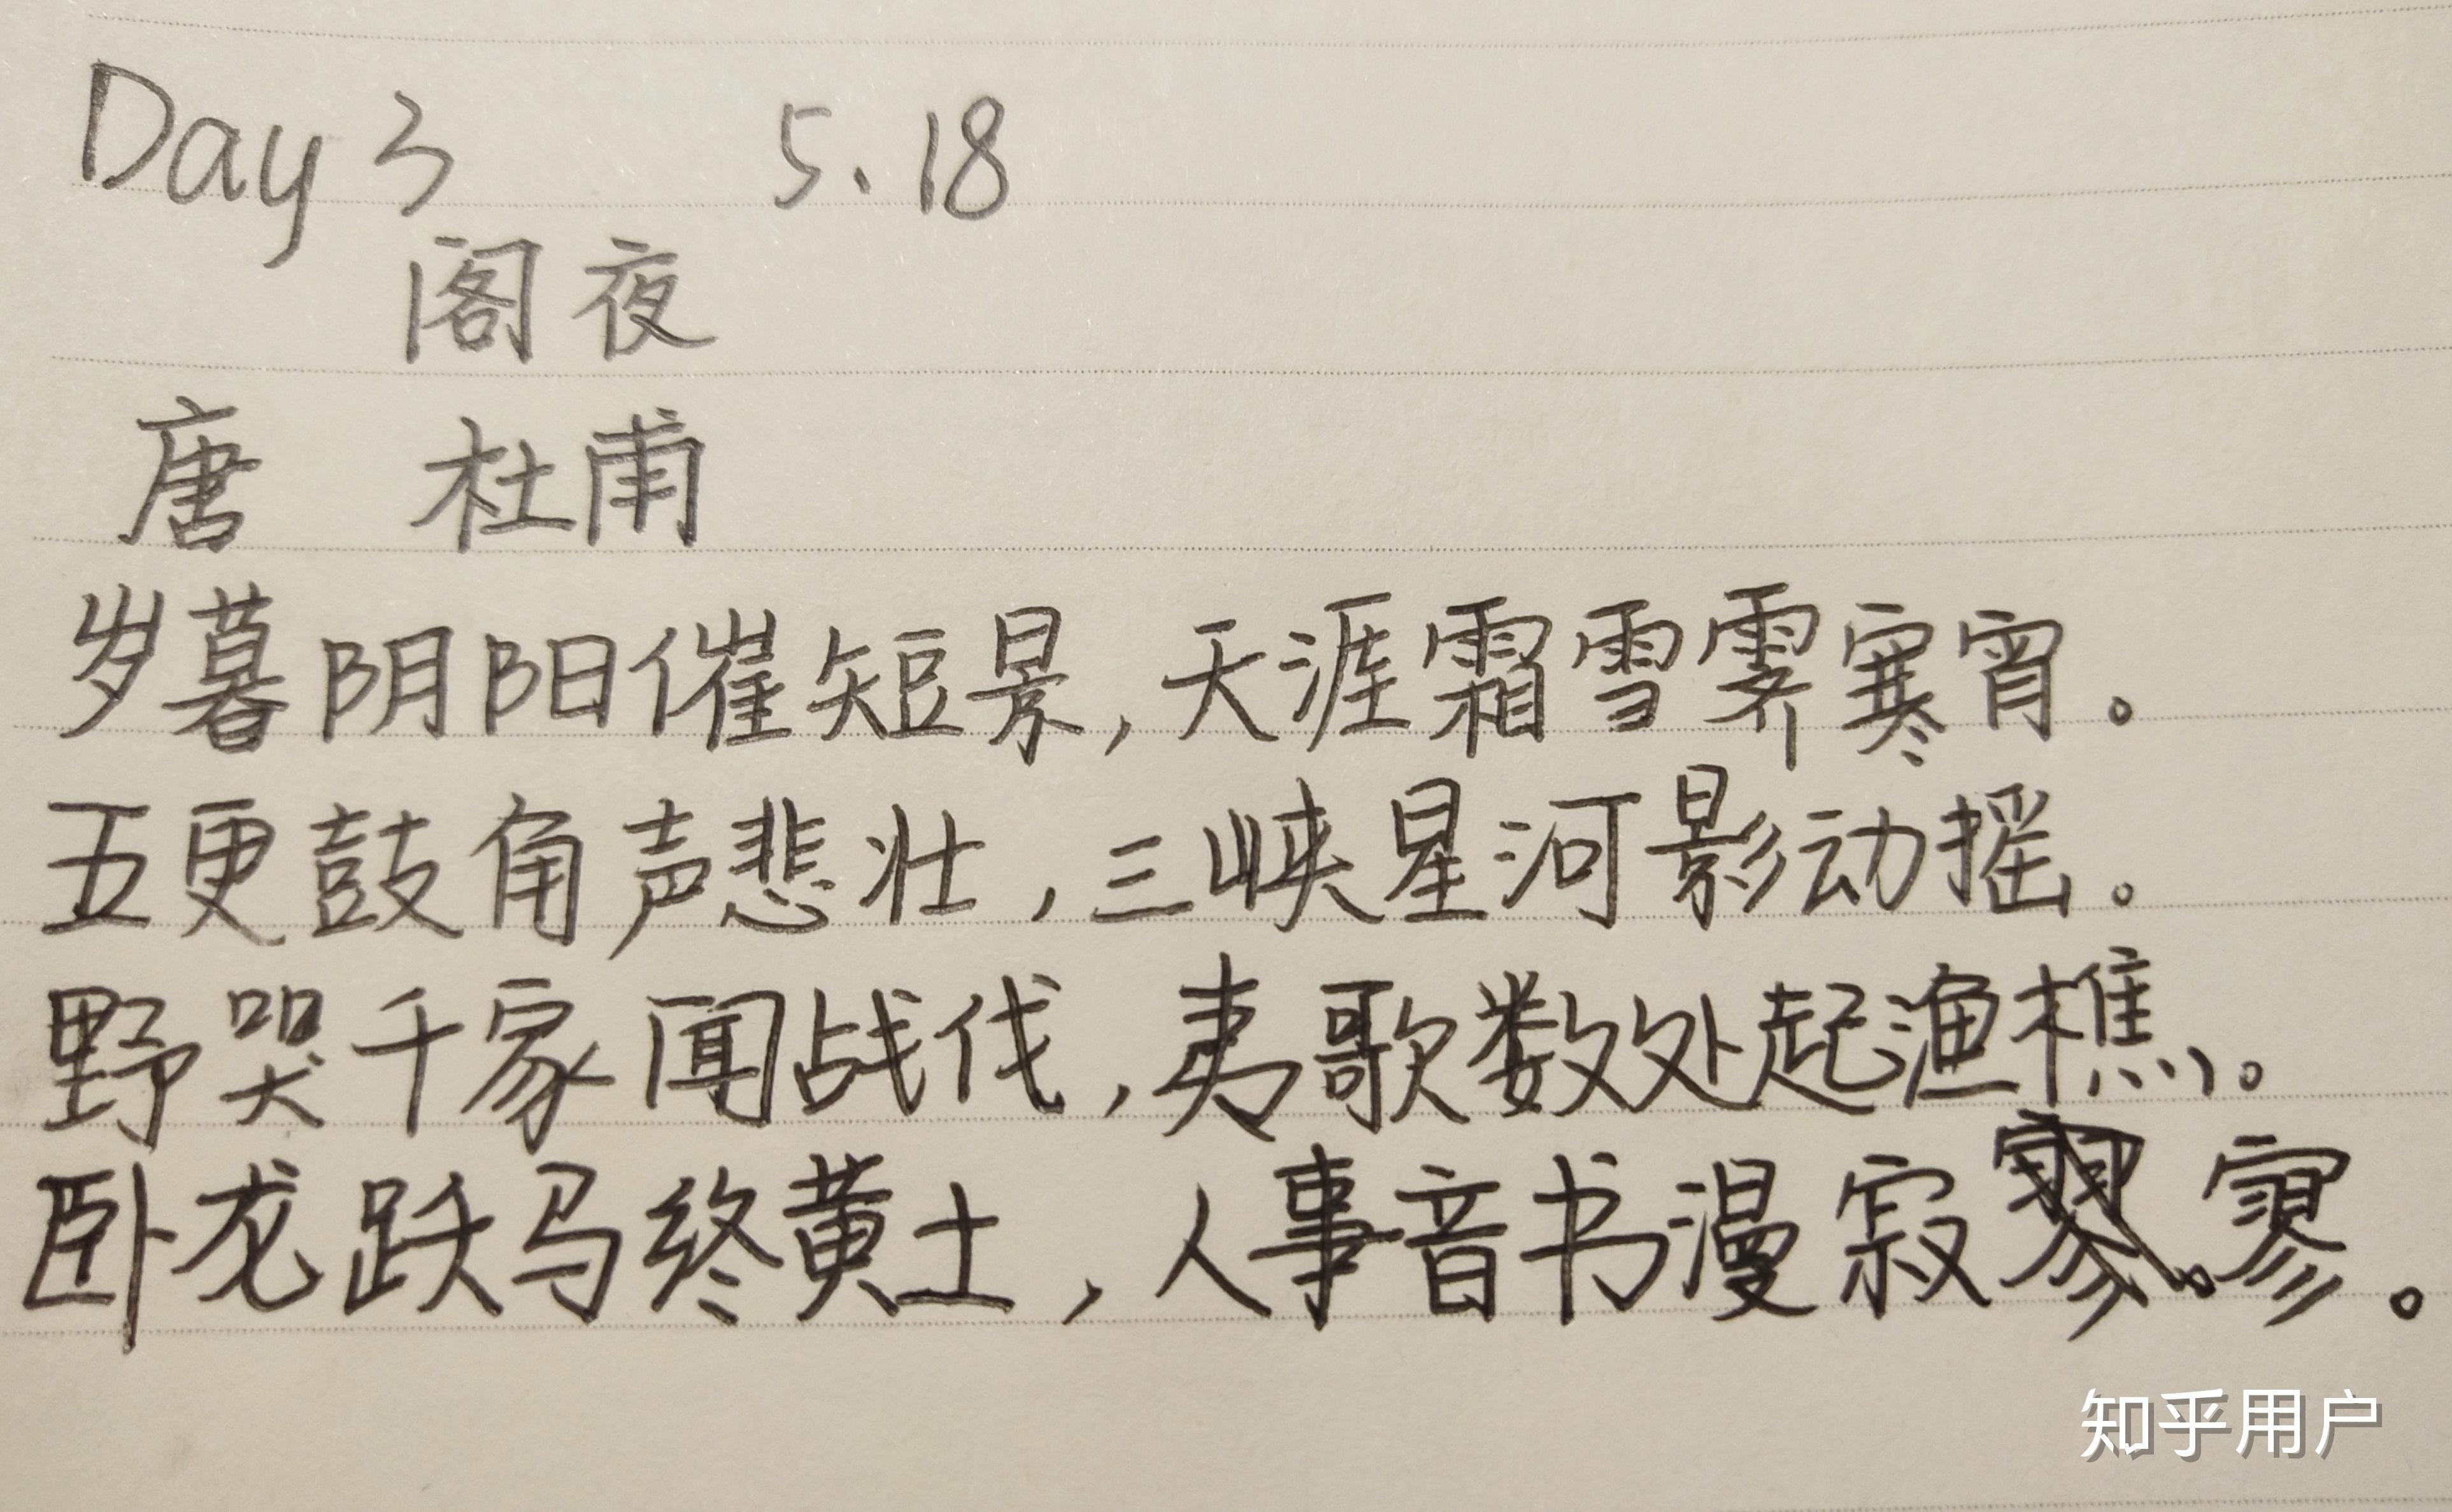 Day 3 5.18
阁夜
唐 杜甫
岁暮阴阳催短景,天涯霜雪霁寒宵。
五更鼓角声悲壮,三峡星河影动摇。
野哭千家闻战伐,夷歌数处起渔樵。
卧龙跃马终黄土,人事音书漫寂寥。
知乎用户